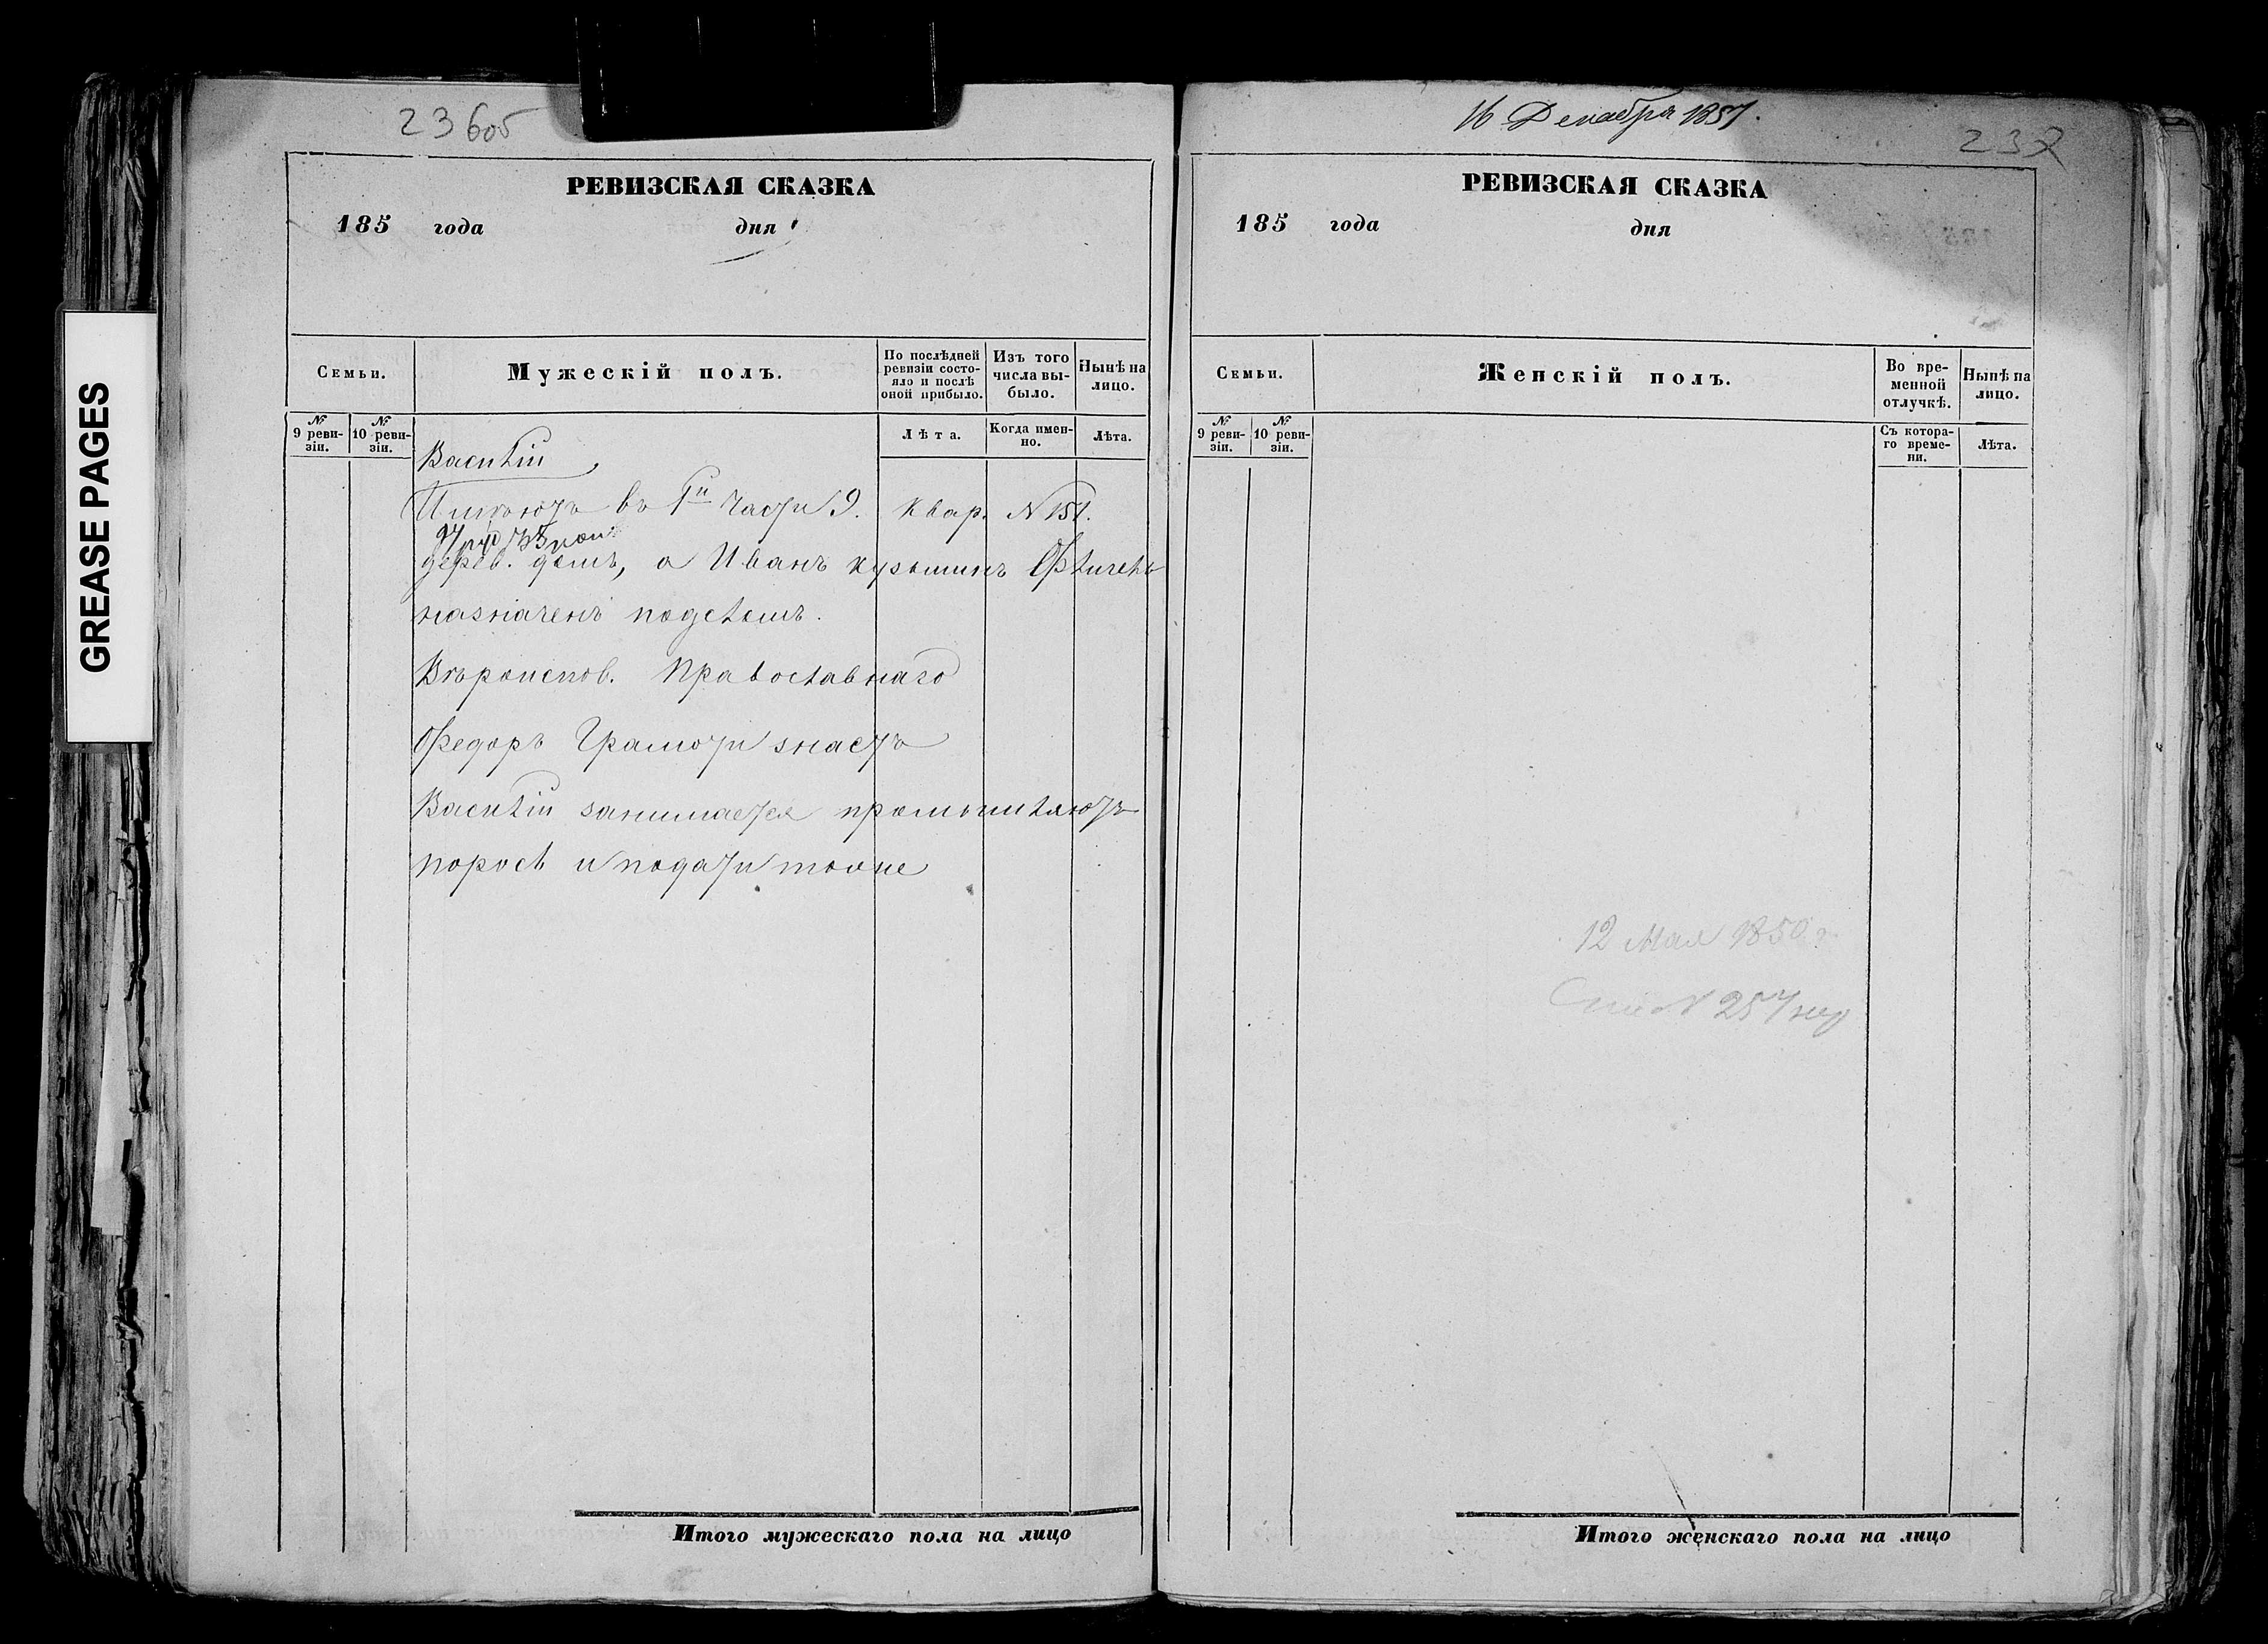 23605
РЕВИЗСКАЯ СКАЗКА
185 года дня
Семьи.
Мужескій полъ.
По послѣдней ревизіи состояло и послѣ оной прибыло.
Изъ того числа выбыло.
Нынѣ на лицо.
№ 9 ревизіи.
№ 10 ревизіи.
Лѣта.
Когда именно.
Лѣта.
Василій
Имѣютъ въ 1й части 9. квар. N 151.
дерев. домъ, а Иванъ Кузьминъ
назначенъ
Вѣроиспов. Православнаго
Федоръ Грамоти знаетъ
Василій занимается
и подати
GREASE PAGES
Итого мужескаго пола на лицо
16 Декабря 1857.
232
РЕВИЗСКАЯ СКАЗКА
185 года дня
Семьи.
Женскій полъ.
Во временной отлучкѣ.
Нынѣ на лицо.
№ 9 ревизіи.
№ 10 ревизіи.
Съ котораго времени.
Лѣта.
12 Мая 1850
Итого женскаго пола на лицо